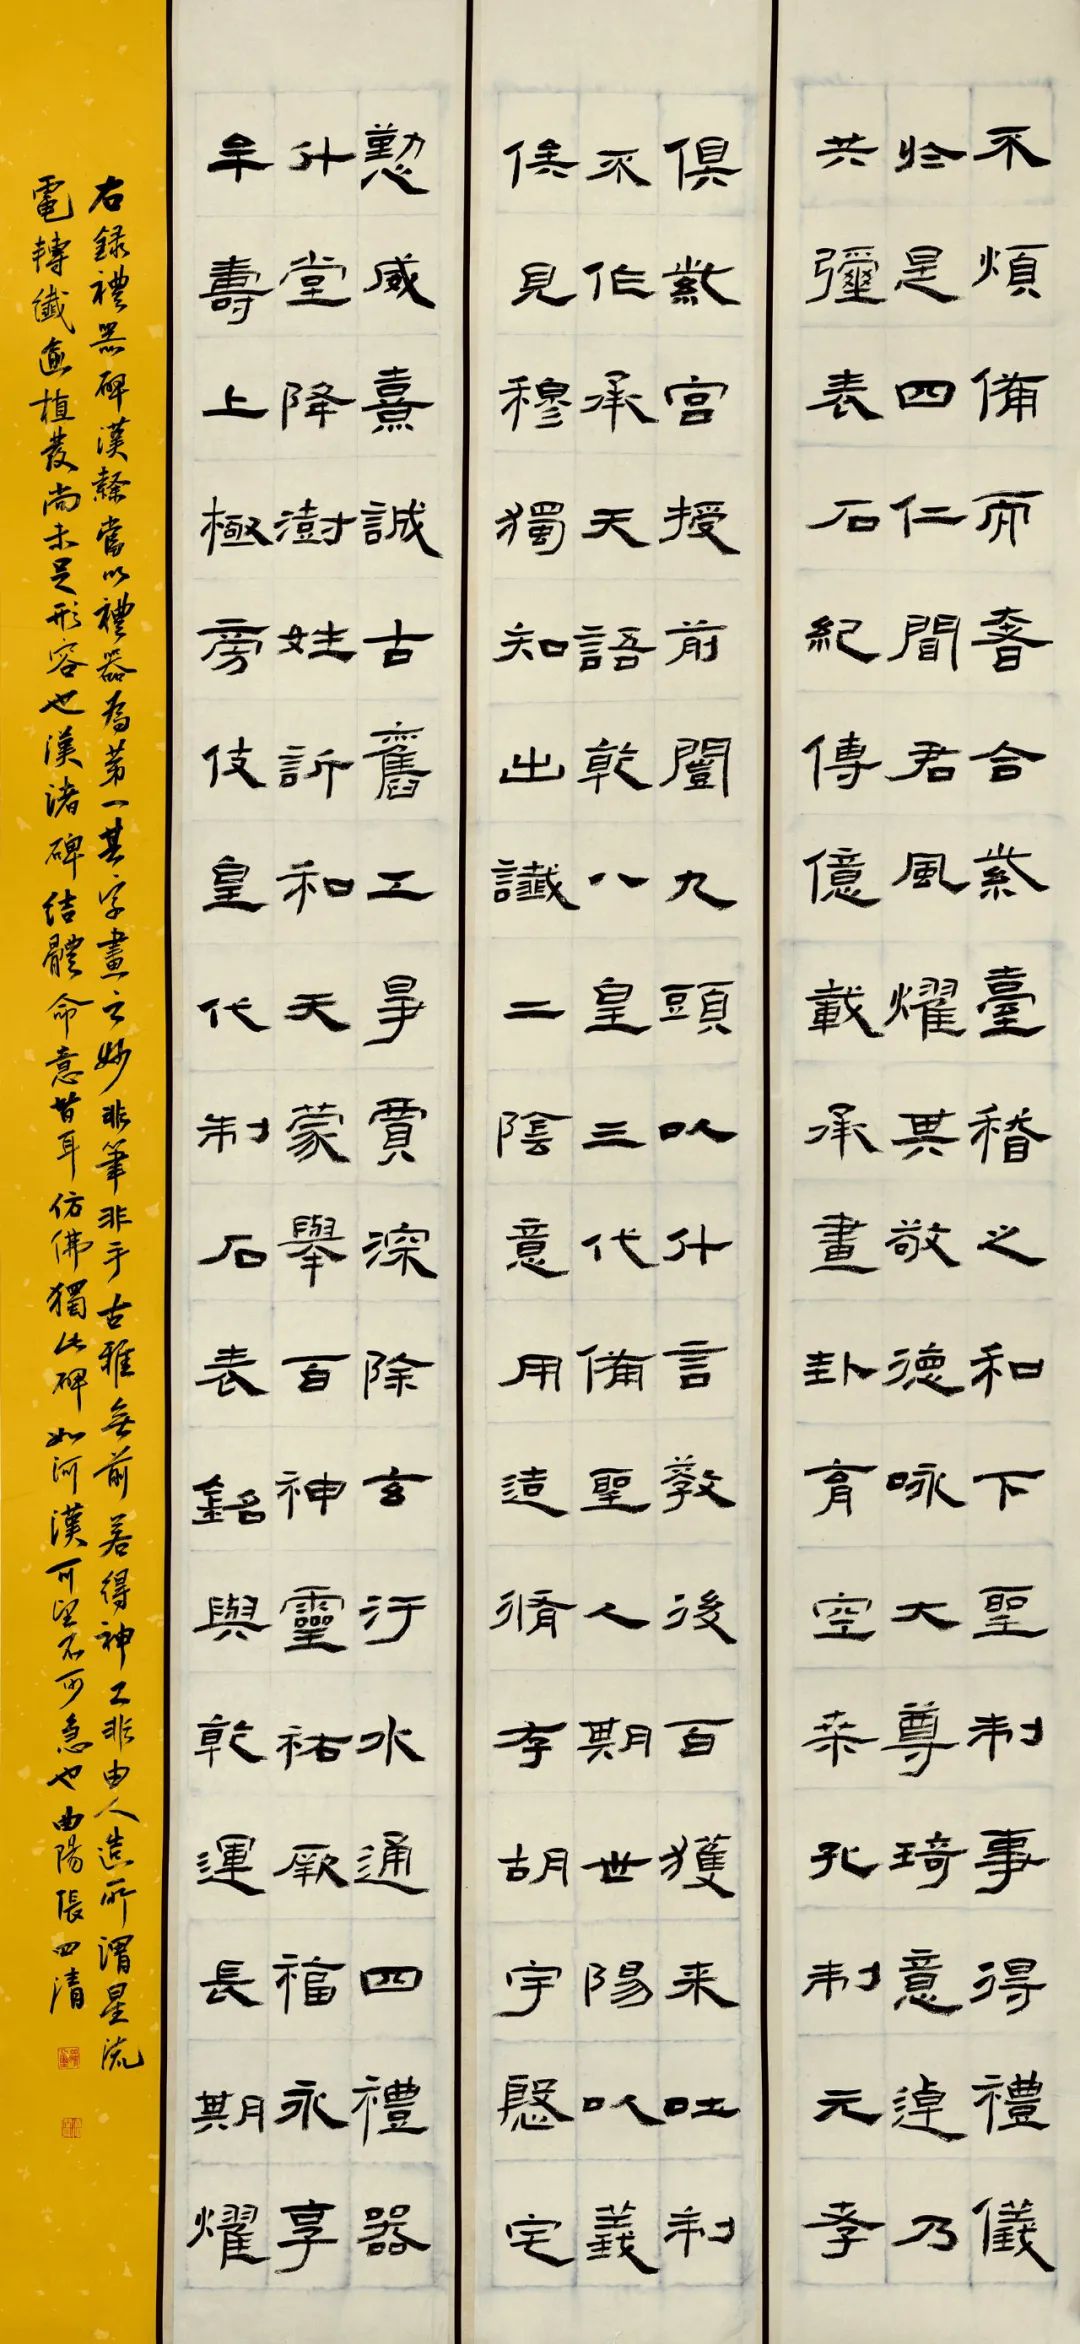 不煩備而奢合紫臺稽之和下聖制事得禮儀
於是四仁聞君風燿其敬德咏大尊琦意逴乃
共彌表石紀傳億載承畫卦育空桒孔制元孝
俱紫宮授前闓九頭以什言教後百獲来吐制
不作承天語乾八皇三代備聖人期世陽以義
俟見穆獨知出讖二陰意用造脩孝胡宇慇宅
懃威熹誠古舊工昇賈深除玄汙水通四禮器
升堂降澍姓訢和天蒙舉百神靈祐厥福永享
牟壽上極旁伎皇代制石表銘與乾運長期燿
右錄禮器碑漢隸當以禮器為第一其字畫之妙非筆非手古雅無前若得神工非由人造所謂星流
電轉纖逾植發尚未足形容也漢諸碑結體命意皆耳仿佛獨此碑如河漢可望不可急也曲陽張四清